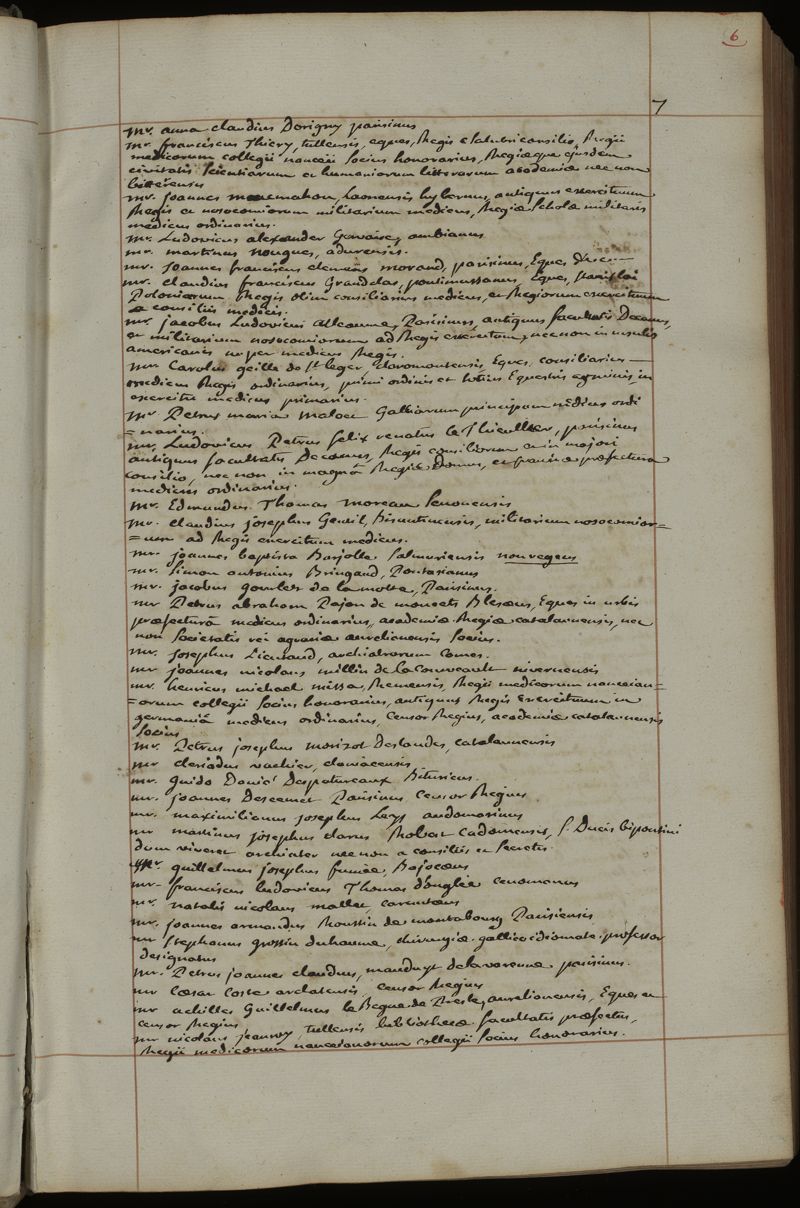 6
7
mr. anna claudius Dorigny parisinus
mr. franciscus Thiery, tullensis, eques, Regis e Salubri consilio, Regii
medicorum collegii nanceii Socius honorarius, Regiaeque ejusdem
civitatis Scientiarum et humaniorum litterarum academiae nec non
bitterensis
mr. joannes macmahon, Laonensis hybernus, antiquus exercituum
Regis et nosocomiorum militarium medicus, Regiae Scholae militaris
medicus ordinarius.
mr. Ludovicus alexander Gervaise, ambianus
mr. martinus nougues, adurensis.
mr. joannes franciscus clemens morand, parisinus, Eques
mr. claudius franciscus Grandclas, pontimussanus, Eques, Stanislai
Poloniarum Regis olim consiliarius medicus, et Regiorum exercituum
a consiliis medicis.
mr. jacobus Ludovicus alleaume, Parisinus, antiquus facultatis Decanus,
et militarium nosocomiorum ad Regis exercitum, nec non in insulis
americanis nuper medicus Regis.
mr. Carolus geille de St leger, claromontensis, Eques, consiliarius
medicus Regis ordinarius, primi ordinis et totius Equestris agminis, in
exercitu medicus primarius.
mr. Petrus maria maloet Galliarum principum medicus ordi
=narius.
mr. Ludovicus Petrus felix renatus le Thieullier, parisinus
antiquus facultatis Decanus, Regis consiliarius in majori
consilio, nec non in magnâ Regiae Domus, et praefectura
medicus ordinarius.
mr. Edmundus Thomas moreau Senonensis
mr. claudius josephus Gentil, Bisuntinensis, militarium nosocomior=
=um ad Regis exercitum medicus.
mr. joannes baptista Barjolle Salmuriensis non regens
mr. Simon antonius Bringaud, Pontasianus
mr. jacobus de la motte, Parisinus.
mr Petrus abraham Pajon de moncets Blesaeus, Eques in urbis
praefecturâ medicus ordinarius, academiae Regiae catalaunensis, nec
non Societatis rei agrariae aurelianensis Socius.
mr. josephus Lieutaud, archiatrorum Comes.
mr joannes nicolaus millin de la Courveault nivernensis
mr. henricus michael missa, Remensis, Regii medicorum nanceian=
=orum collegii Socius honorarius, antiquus Regis Exercituum in
germaniâ medicus ordinarius, Censor Regius, academiae catalaunensis
Socius
mr. Petrus josephus morizot Deslandes, catalaunensis
mr. cleriadus vachier, cluniacensis
mr. guido Daniel Despatureaux Bituricus.
mr. joannes Descemet Parisinus Censor Regius
mr. maximilianus josephus Leys audomarinus
mr martinus josephus clarus Robert Cadomensis, S. Ducis bipontini
dum viveret archiater nec non a consiliis et Secretis
mr. guillelmus josephus fumée, Bajocaeus
mr. franciscus ludovicus Thomas d'onglée cenomanus
mr. natalis nicolaus mallet, carnutaeus
mr. joannes armandus Roussin de montabourg Parisiensis
mr Stephanus grossin duhaume, chirurgiae gallico idiomate professor
designatus
mr. Petrus joannes claudius, mauduyt de la varenne parisinus.
mr caesar Coste arelatensis, censor Regius
mr achilles Guillelmus le Begue de Presle, aurelianensis, Eques et
censor Regius
mr nicolaus jeanroy, tullensis bibliothecae facultatis praefectus,
Regii medicorum nanceianorum collegii Socius honorarius.